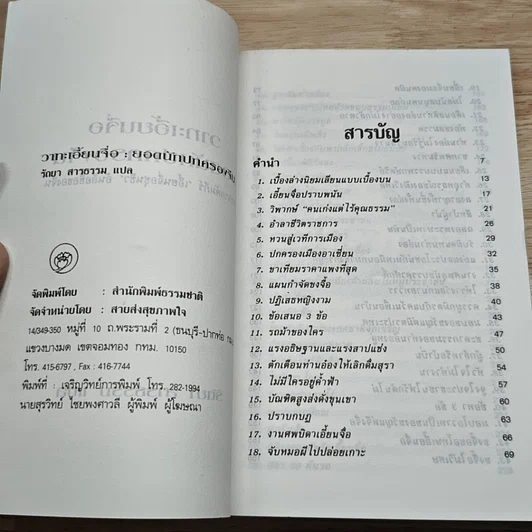 วาทะเอี้ยนจื่อ
วาทะเอี้ยนจื่อ : ยอดนักปกครองจีน
รัถยา สารธรรม, แปล
จัดพิมพ์โดย : สำนักพิมพ์ธรรมชาติ
จัดจำหน่ายโดย : สายส่งสุขภาพใจ
14/349-350 หมู่ที่ 10 ถ.พระรามที่ 2 (ธนบุรี-ปากท่อ
แขวงบางมด เขตจอมทอง กทม. 10150
โทร. 415-6797, Fax : 416-7744
พิมพ์ที่ : เจริญวิทย์การพิมพ์ โทร. 282-1994
นายสุรวิทย์ ไชยพงศาวลี ผู้พิมพ์ ผู้โฆษณา
สารบัญ
คำนำ 7
1. เบื้องล่างนิยมเลียนแบบเบื้องบน 13
2. เอี้ยนจื่อปราบพนัน 17
3. วิพากษ์ "คนเก่งแต่ไร้คุณธรรม" 21
4. อำลาชีวิตราชการ 26
5. หวนสู่เวทีการเมือง 29
6. ปกครองเมืองอาเชี่ยน 32
7. ขาเทียมราคาแพงที่สุด 35
8. แผนกำจัดขงจื่อ 38
9. ปฏิเสธหญิงงาม
10. ข้อเสนอ 3 ข้อ 43
11. รถม้าของใคร 47
12. แรงอธิษฐานและแรงสาปแช่ง 50
13. ตักเตือนท่านอ๋องให้เลิกดื่มสุรา 54
14. ไม่มีใครอยู่ค้ำฟ้า 56
15. บัณฑิตสูงส่งดั่งขุนเขา
16. ปราบกบฏ 63
17. งานศพบิดาเอี้ยนจื่อ 66
18. จับหมอผีไปปล่อยเกาะ 69